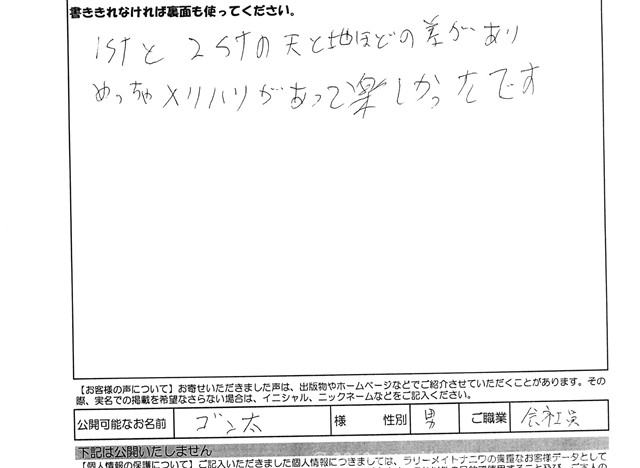 書ききれなければ裏面も使ってください。
1stと2stの天と地ほどの差があり
めっちゃメリハリがあって楽しかったです
【お客様の声について】お寄せいただきました声は、出版物やホームページなどでご紹介させていただくことがあります。その
際、実名での掲載を希望なさらない場合は、イニシャル、ニックネームなどをご記入ください。
公開可能なお名前 ゴン太 様 性別 男 ご職業 会社員
下記は公開いたしません
【個人情報の保護について】ご記入いただきました個人情報につきましては、ラリーメイトナニワの貴重なお客様データとして